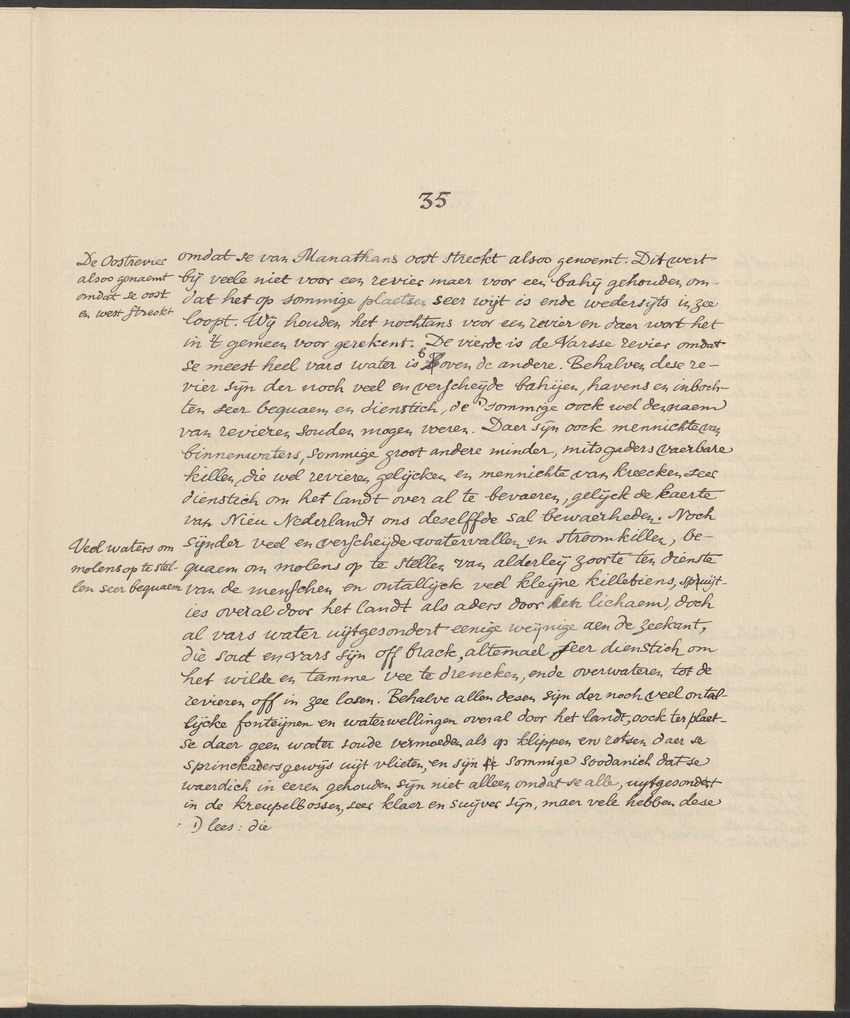 35
De Oostrevier
alsoo genaemt
omdat se oost
en west streckt
omdat se van Manathans oost streckt alsoo genoemt. Dit wert
bij veele niet voor een revier maer voor een bahij gehouden om-
dat het op sommige plaetsen seer wijt is ende wedersijts in zee
loopt. Wij houden het nochtans voor een revier en daer wort het
in 't gemeen voor gerekent. De vierde is de Varsse revier omdat
se meest heel vars water is boven de andere. Behalven dese re-
vier sijn der noch veel en verscheijde bahijen, havens en inboch-
ten seer bequaem en dienstich, de 1) sommige oock wel den naem
van revieren souden mogen voeren. Daer sijn oock mennichte van
binnenwaters, sommige groot andere minder, mitsgaders vaerbare
killen, die wel revieren gelijcken en mennichte van kreecken seer
dienstich om het landt over al te bevaeren, gelijck de kaerte
van Nieu Nederlandt ons deselffde sal bewaerheden. Noch
Veel waters om
molens op te stel-
len seer bequaem
sijnder veel en verscheijde watervallen en stroomkillen, be-
quaem om molens op te stellen van alderleij zoorte ten dienste
van de menschen en ontallijck veel kleijne killetiens, spruijt-
ies overal door het landt als aders door een lichaem, doch
al vars water uijtgesondert eenige weijnige aen de zeekant,
die sout en vars sijn off brack, altemael seer dienstich om
het wilde en tamme vee te drencken, ende overwateren tot de
revieren off in zee losen. Behalve allen desen sijn der noch veel ontal-
lijcke fonteijnen en waterwellingen overal door het landt, oock ter plaet-
se daer geen water soude vermoeden als op klippen en rotsen daer se
sprinckadersgewijs uijt vlieten, en sijn sommige soodanich dat se
waerdich in eeren gehouden sijn niet alleen omdat se alle, uijtgesondert
in de kreupelbossen, seer klaer en suijver sijn, maer vele hebben dese
1) lees: die